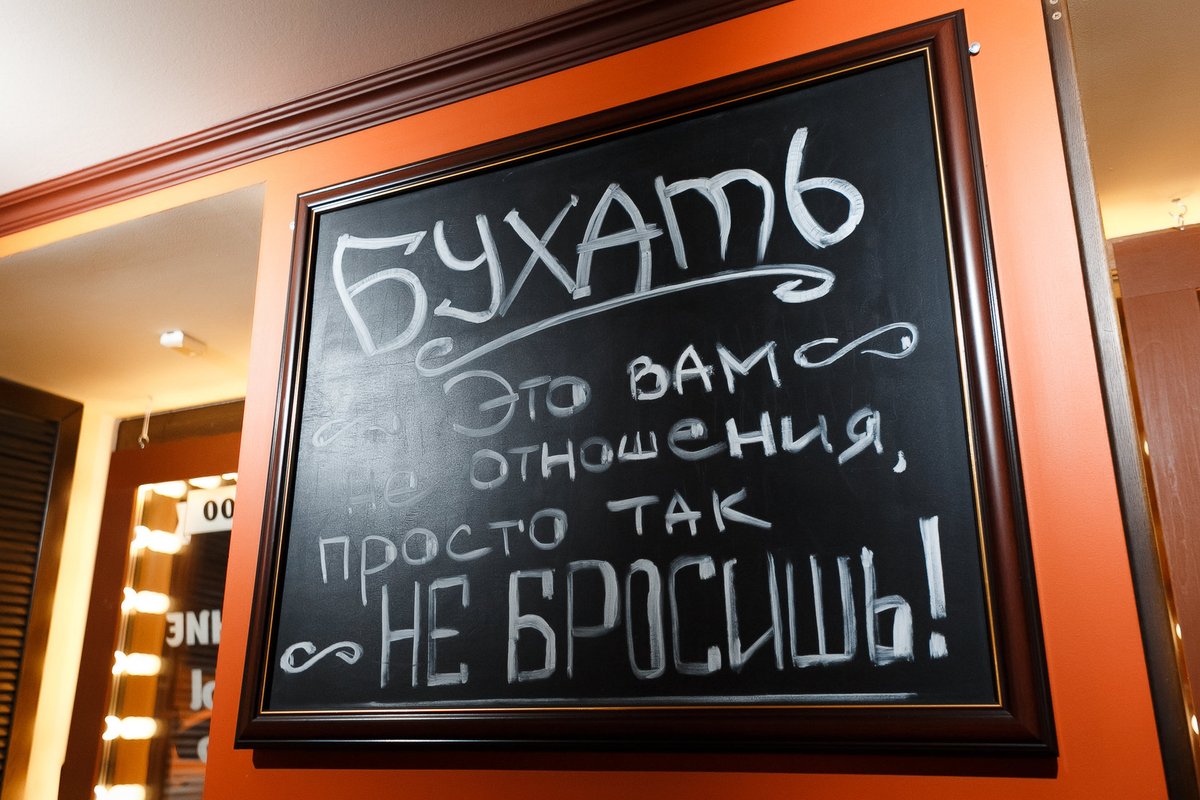 БУХАТЬ
ЭТО ВАМ
не отношения,
просто ТАК
НЕ БРОСИШЬ!
00